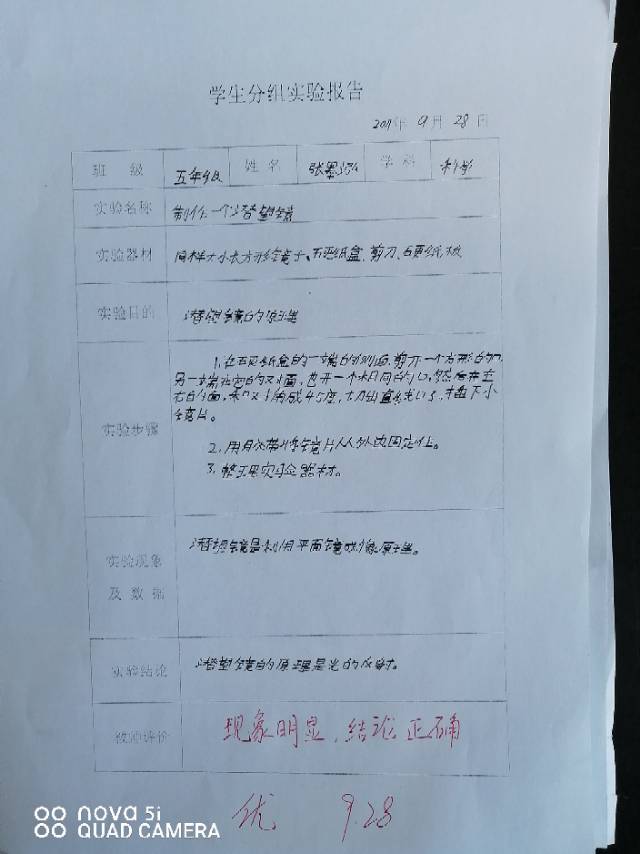 学生分组实验报告
年 9 月 28 日
班 级 五年级 姓 名 张墨 学 科 科学
实验名称 制作一个潜望镜
实验器材 同样大小长方形镜子、硬纸盒、剪刀、硬纸板
实验目的 潜望镜的原理
1. 在硬纸盒的一端的侧面,剪开一个方形的口
另一端在它的对面,也开一个相同的口,然后在左
右的面,相对角成45度,切出直线口,插下小
镜片。
实验步骤
2. 用胶带将镜片从外边固定住。
3. 整理实验器材。
潜望镜是利用平面镜成像原理。
实验现象
及 数 据
实验结论 潜望镜的原理是光的反射。
教师评价 现象明显,结论正确
优 9.28
nova 5i
QUAD CAMERA